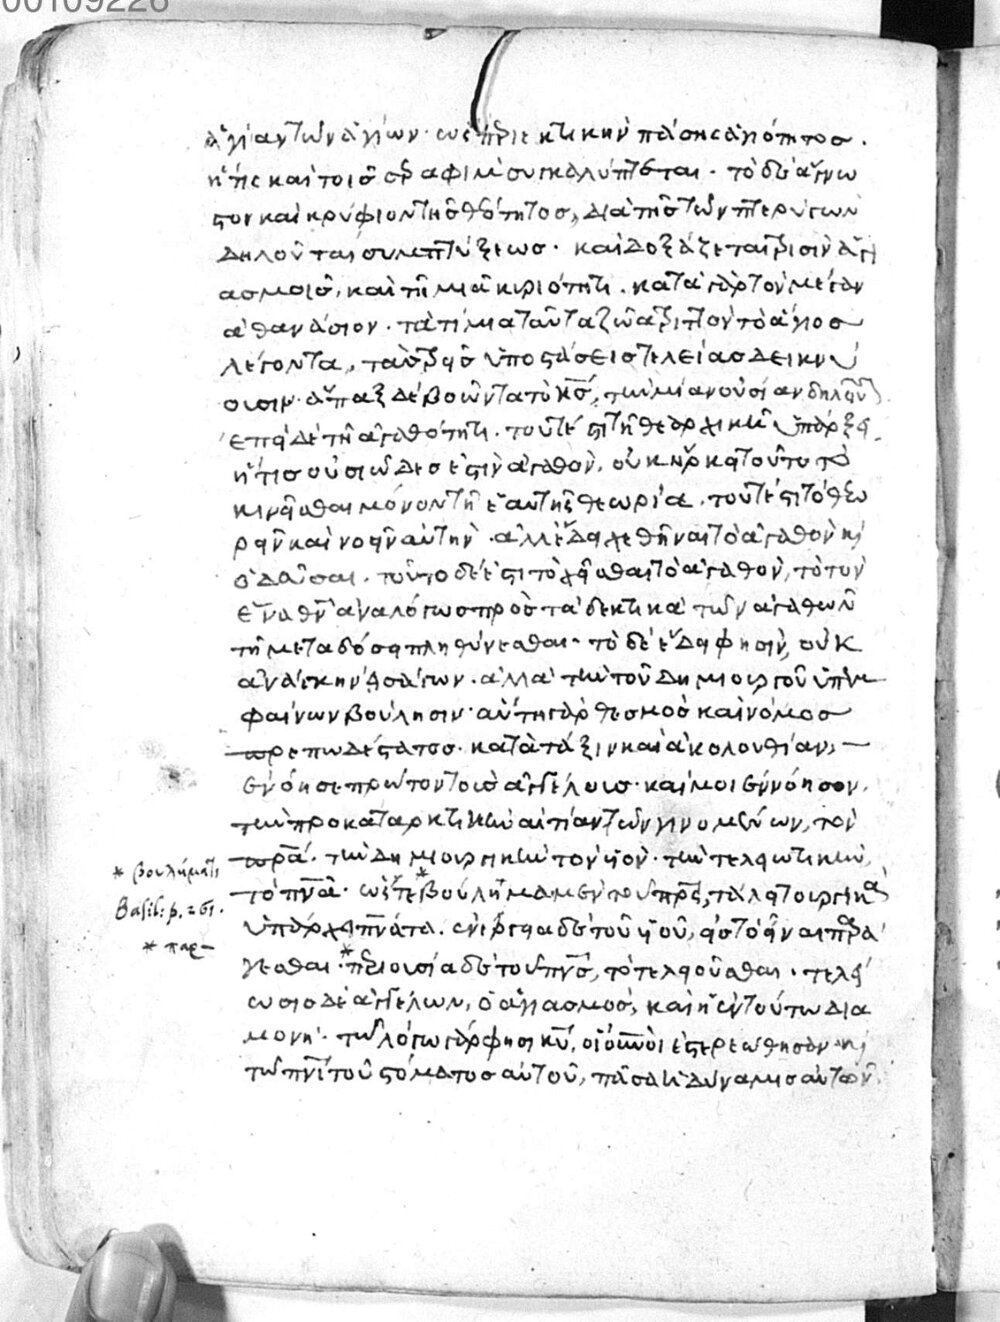 00109226
ἅγια τῶν ἁγίων· ὡς περιεκτικὴν πάσης ἁγιότητος.
ἥτις καὶ τοῖς σεραφὶμ συγκαλύπτεται· τὸ δὲ ἄγνω
στον καὶ κρύφιον τῆς θεότητος, διὰ τῆς τῶν πτερύγων
δηλοῦται συμπτύξεως· καὶ δοξάζεται τρισὶν ἁγι
ασμοῖς, καὶ τῇ μιᾷ κυριότητι. κατὰ γὰρ τὸν μέγαν
ἀθανάσιον· τὰ τίμια ταῦτα ζῶα τρίτον τὸ ἅγιος
λέγοντα, τὰς τρεῖς ὑποστάσεις τελείας δεικνύ
ουσιν· ἅπαξ δὲ βοῶντα τὸ κς, τὴν μίαν οὐσίαν δηλοῦν
ἐπεὶ δὲ τῇ ἀγαθότητι· τουτέστι τῇ θεαρχικῇ ὑπάρξει
ἥτις οὐσιῶδες ἐστὶν ἀγαθόν, οὐκ ἤρκει τοῦτο τὸ
κινεῖσθαι μόνον τῇ ἑαυτῆς θεωρίᾳ. τουτέστι τὸ θεω
ρεῖν καὶ νοεῖν αὐτήν· ἀλλ' ἔδει χεθῆναι τὸ ἀγαθὸν κὶ
ὁδεῦσαι. τοῦτο δέ ἐστι τὸ χεῖσθαι τὸ ἀγαθόν, τὸ τὸν
ἕνα θν ἀναλόγως πρὸς τὰ δεκτικὰ τῶν ἀγαθῶν
τῇ μεταδόσει πληθύνεσθαι· τὸ δὲ ἔδει φησιν, οὐκ
ἀνάγκην εἰσάγων· ἀλλὰ τὴν τοῦ δημιουργοῦ ὑπεμ
φαίνων βούλησιν· αὕτη γὰρ θεσμὸς καὶ νόμος
πρεπωδέστατος· κατὰ τάξιν καὶ ἀκολουθίαν,
ἐννόησε πρῶτον τοὺς ἀγγέλους· καί μοι ἐννόησον,
τὴν προκαταρκτικὴν αἰτίαν τῶν γινομένων, τὸν
πρα. τὴν δημιουργικὴν τὸν υἱόν· τὴν τελειωτικὴν,
τὸ πνα· ὥστε * βουλήμα μεν τοῦ πρς, τὰ λειτουργικὰ
ὑπάρχει πνατα. ἐνεργεία δὲ τοῦ υἱοῦ, εἰς τὸ εἶναι παρά
γεσθαι· * περιουσία δὲ τοῦ πνς, τὸ τελειοῦσθαι· τελεί
ωσις δὲ ἀγγέλων, ὁ ἁγιασμός, καὶ ἡ ἐν τούτω δια
μονή· τῶ λόγω γάρ φησι κυ, οἱ οὐνοὶ ἐστερεώθησαν κὶ
τῶ πνι τοῦ στόματος αὐτοῦ, πᾶσα ἡ δύναμις αὐτῶν.
* βουλήματι
Basil: p. 261.
* παρ—